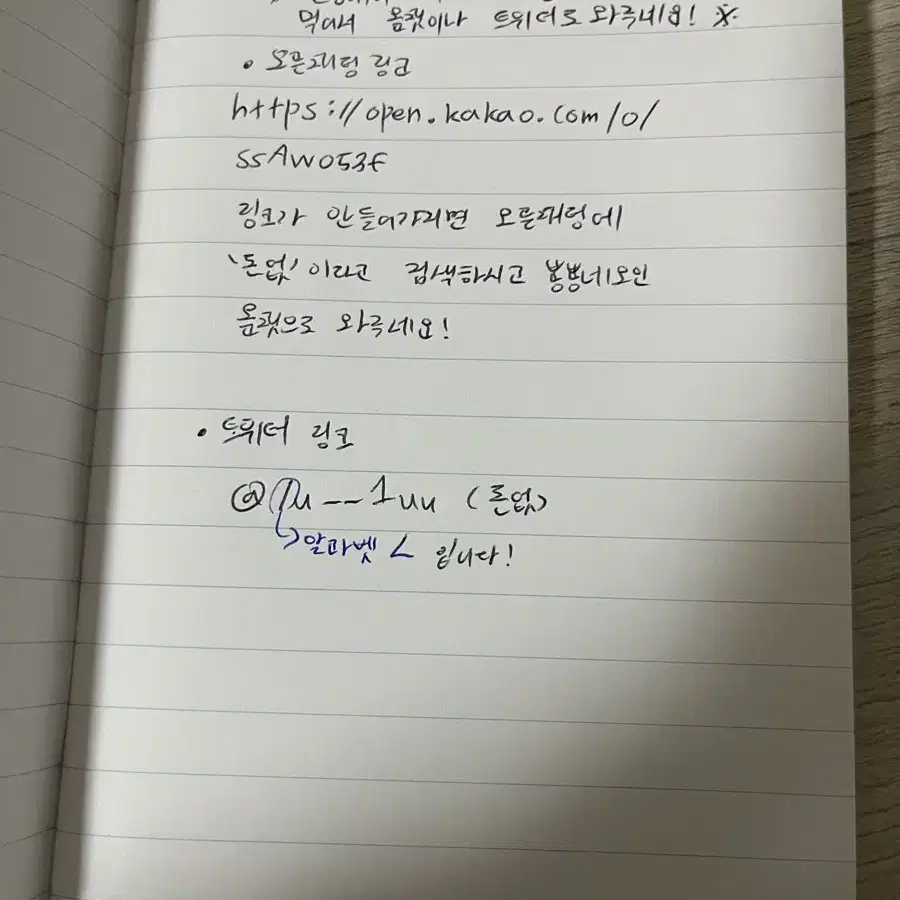 먹어서 옾챗이나 트위터로 와주세요! ※
• 오픈채팅 링크
https://open.kakao.com/o/
ssAwo53f
링크가 안들어가지면 오픈채팅에
'돈없' 이라고 검색하시고 뿅뿅네모인
옾챗으로 와주세요!
• 트위터 링크
@lu__1uu (돈없)
알파벳 L 입니다!